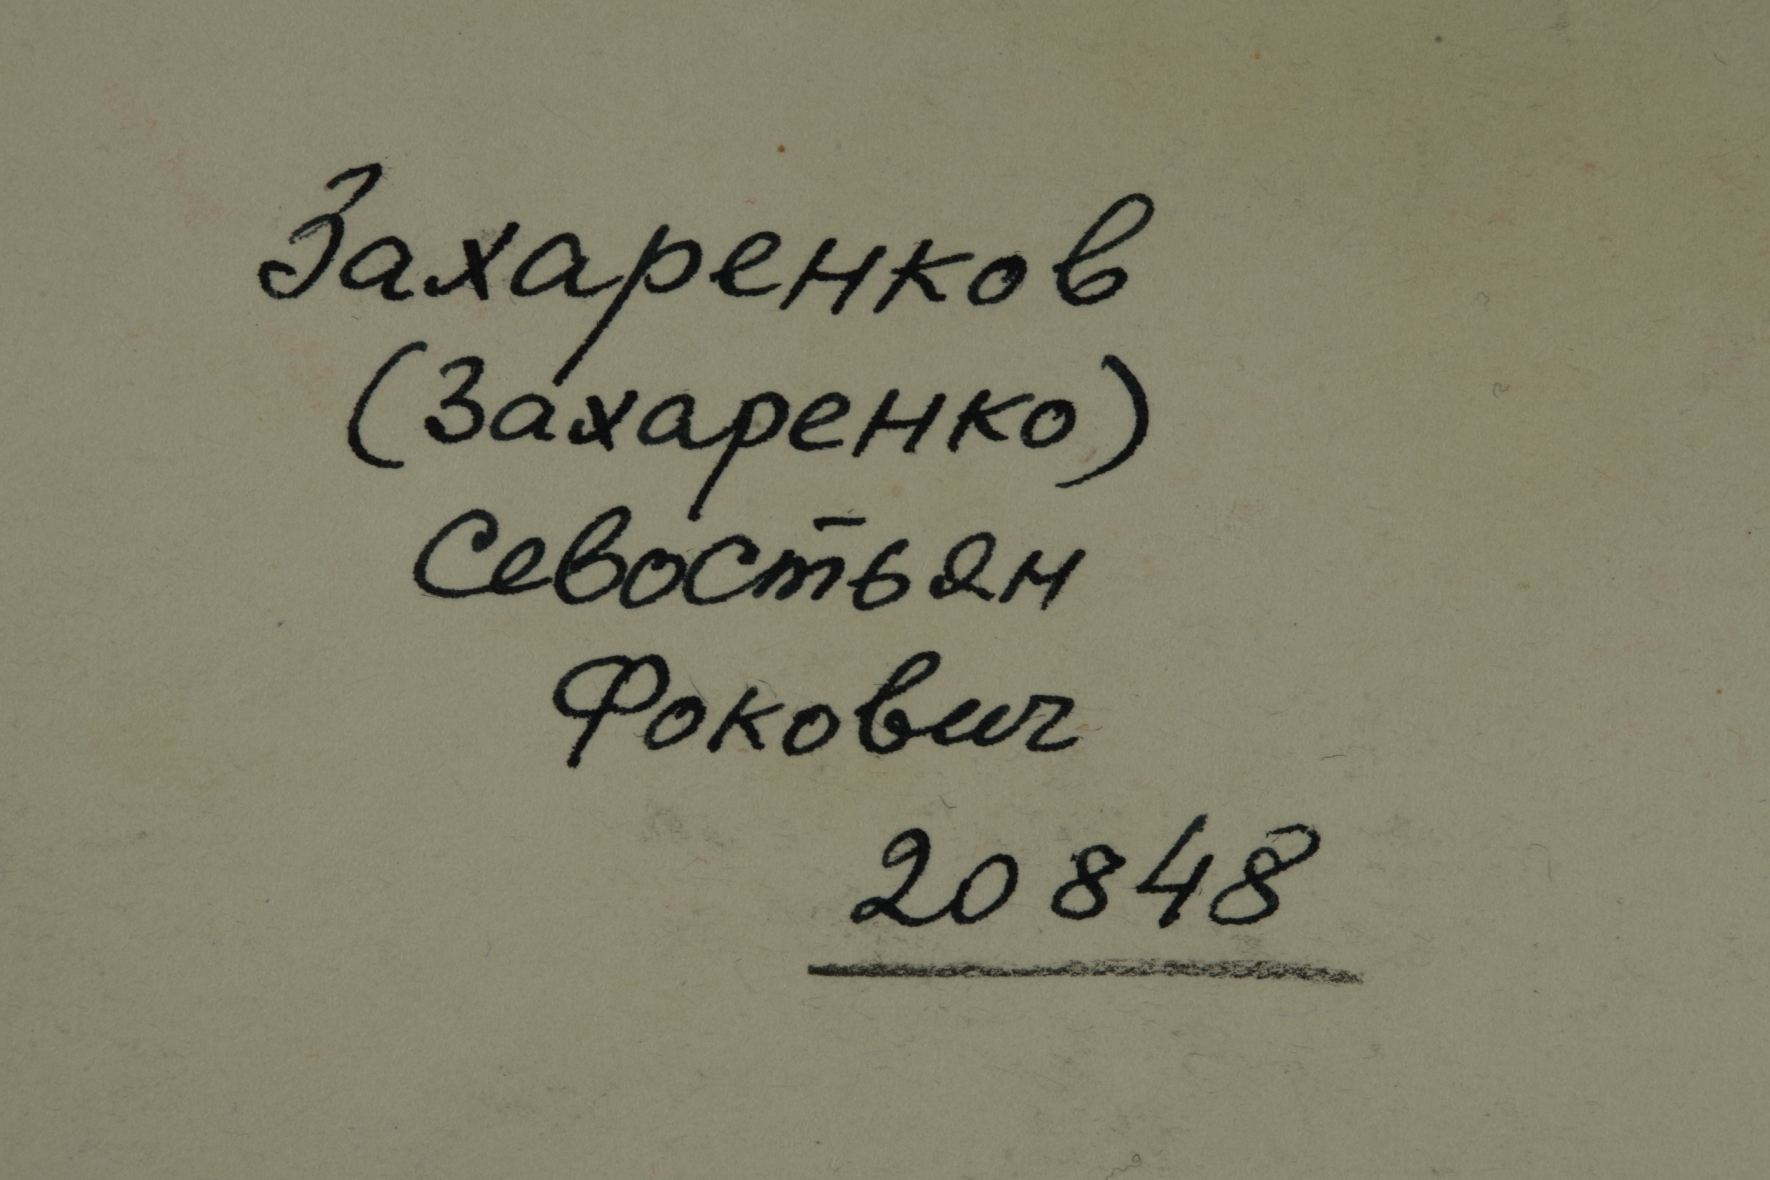 Захаренков
(Захаренко)
Севостьян
Фокович
20848